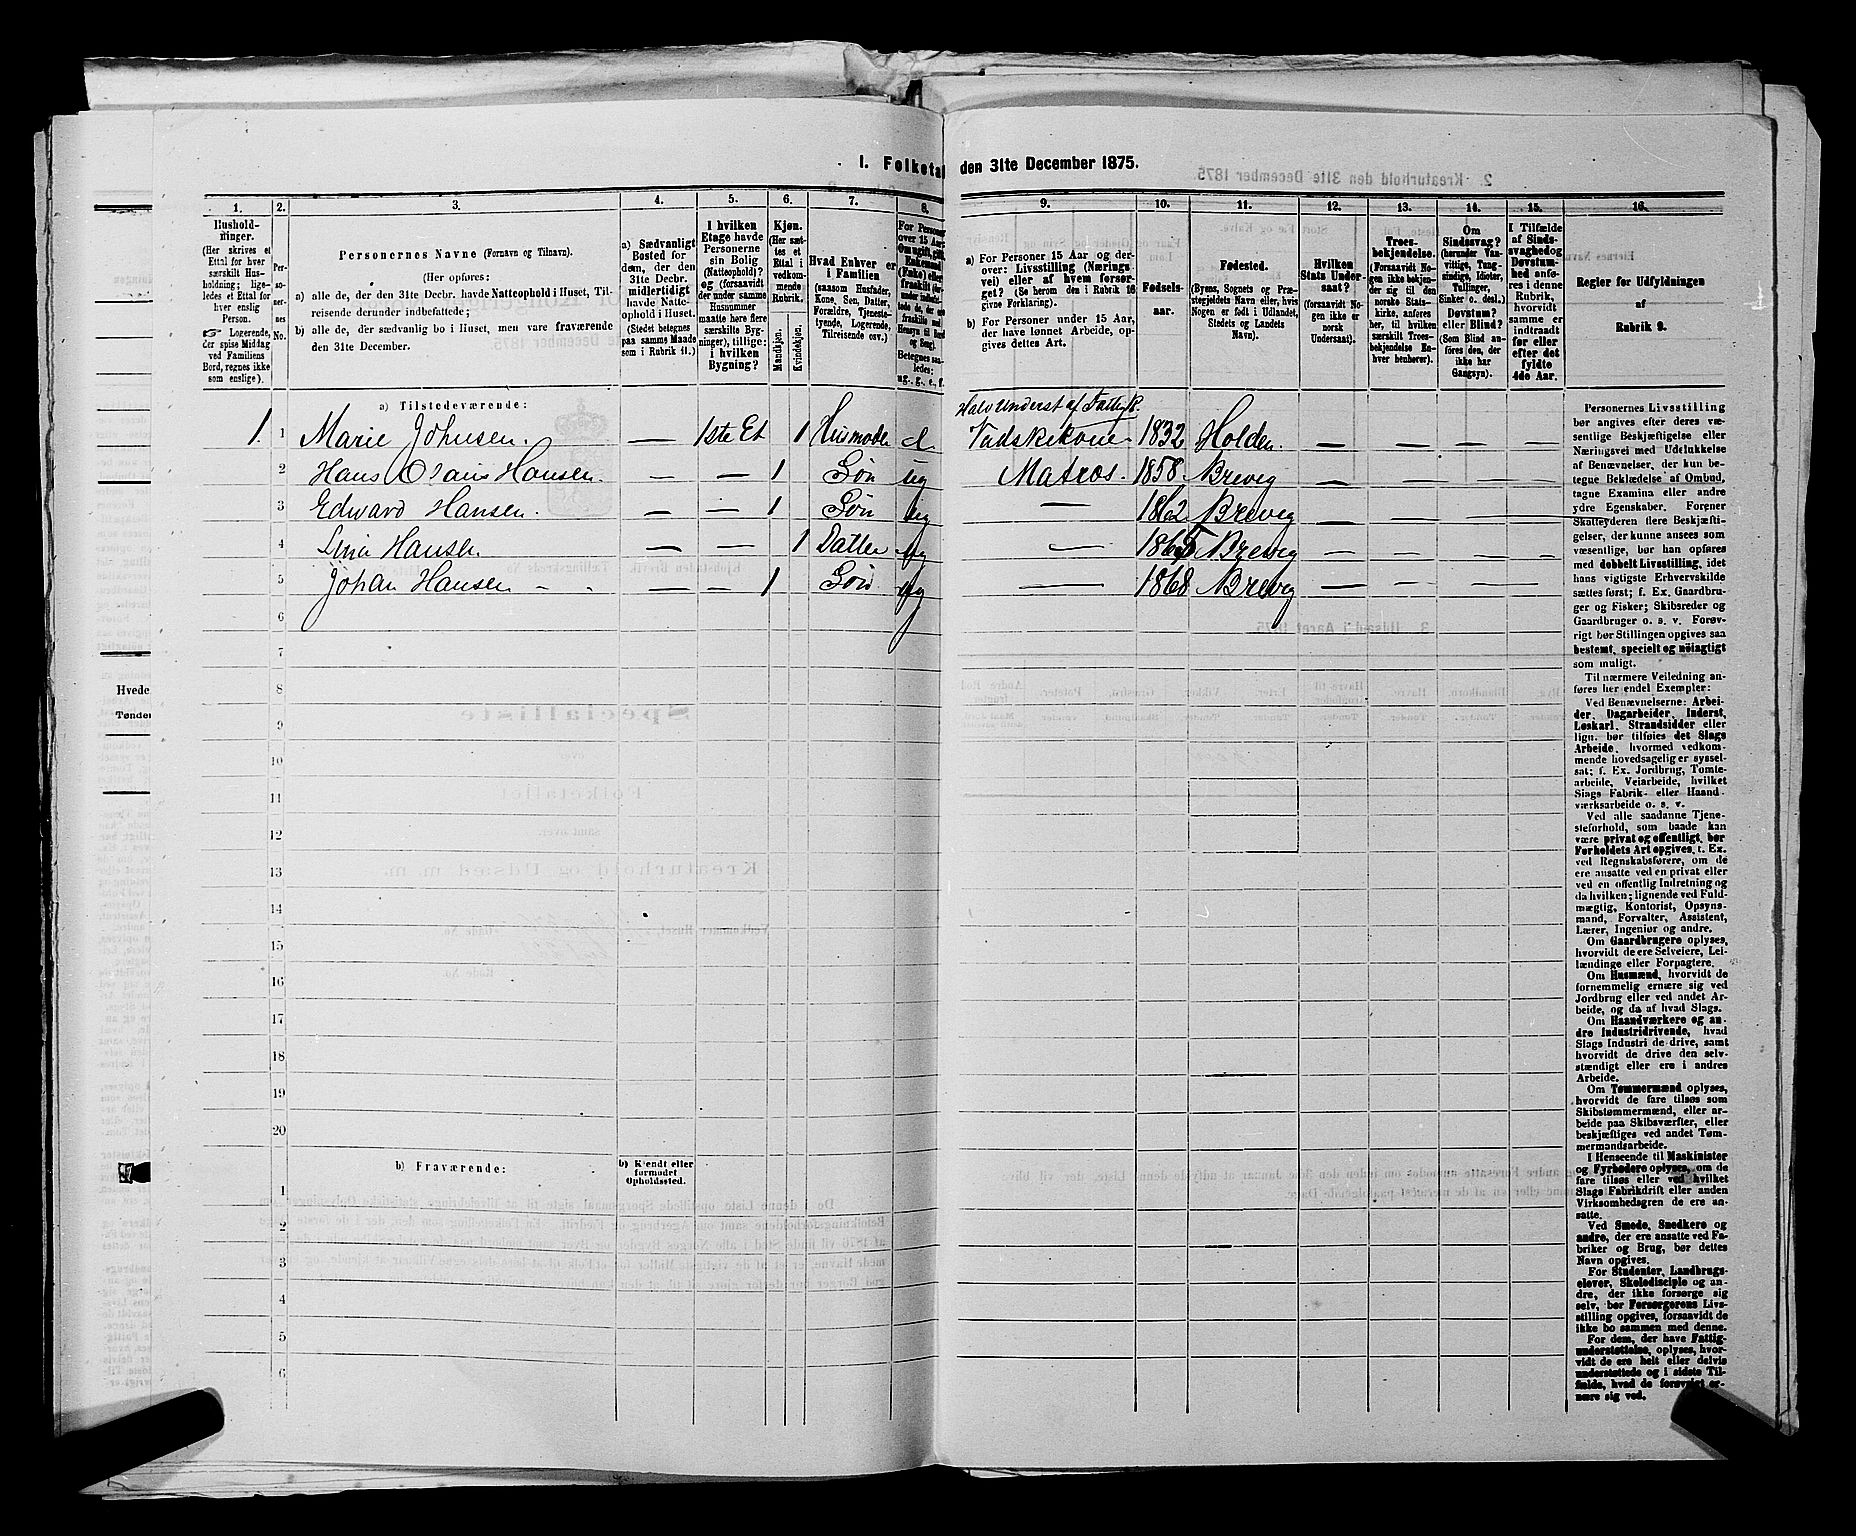 I. Folketal den 31te December 1875.
1. 2. 3. 4. 5. 6. 7. 8. 9. 10. 11. 12. 13. 14. 15. 16.
Hushold-
ninger.
(Her skrives et
Ettal for hver
særskilt Hus-
holdning; lige-
ledes et Ettal for
hver enslig
Person.
☞ Logerende,
der spise Middag
ved Familiens
Bord, regnes ikke
som enslige).
Per-
so-
ner-
nes
No.
Personernes Navne (Fornavn og Tilnavn).
(Her opføres:
a) alle de, der den 31te Decbr. havde Natteophold i Huset, Til-
reisende derunder indbefattede;
b) alle de, der sædvanlig bo i Huset, men vare fraværende
den 31te December.
a) Sædvanligt
Bosted for
dem, der den
31te Decbr.
midlertidigt
havde Natte-
ophold i Huset.
(Stedet betegnes
paa samme Maade
som i Rubrik 11.)
I hvilken
Etage havde
Personerne
sin Bolig
(Natteophold)?
og (forsaavidt
der under samme
Husnummer
maatte høre flere
særskilte Byg-
ninger), tillige:
i hvilken
Bygning?
Kjøn.
(Her sæt-
tes et
Ettal i
vedkom-
mende
Rubrik.
Mandkjøn.
Kvindekjøn.
Hvad Enhver er
i Familien
(saasom Husfader,
Kone, Søn, Datter,
Forældre, Tjeneste-
tyende, Logerende,
Tilreisende osv.)
For Personer
over 15 Aar:
Om ugift, gift,
Enkemand
(Enke) eller
fraskilt
Betegnes saa-
ledes:
ug., g., e., f.
a) For Personer 15 Aar og der-
over: Livsstilling (Nærings-
vei) eller af hvem forsør-
get? (Se herom den i Rubrik 16
givne Forklaring).
b) For Personer under 15 Aar,
der have lønnet Arbeide, op-
gives dettes Art.
Fødsels-
aar.
Fødested.
(Byens, Sognets og Præ-
stegjeldets Navn eller, hvis
Nogen er født i Udlandet,
Stedets og Landets
Navn).
Hvilken
Stats Under-
saat?
(forsaavidt No-
gen ikke er
norsk
Undersaat).
Troes-
bekjendelse.
(Forsaavidt No-
gen ikke bekjen-
der sig til den
norske Stats-
kirke, anføres
her, til hvilken
særskilt Troes-
bekjendelse En-
hver henhører).
Om
Sindssvag?
(herunder Van-
vittige, Tung-
sindige, Idioter,
Tullinger,
Sinker o. desl.)
Døvstum?
eller Blind?
(Som Blind an-
føres den, der
ikke har
Gangsyn).
I Tilfælde
af Sinds-
svaghed og
Døvstum-
hed anfø-
res i denne
Rubrik,
hvorvidt
samme er
indtraadt
før eller
efter det
fyldte
4de Aar.
Regler for Udfyldningen
af
Rubrik 9.
a) Tilstedeværende:
Halv Underst af Fattigk.
1. 1 Marie Johnsen. — 1ste Et 1 Husmoder e Vadskekone 1832 Holden — — — —
2 Hans Olaus Hansen. — — 1 Søn ug Matros. 1858 Brevig — — — —
3 Edward Hansen. — — 1 Søn ug — 1862 Brevig — — — —
4 Lina Hansen. — — 1 Datter ug — 1865 Brevig — — — —
5 Johan Hansen - - — — 1 Søn ug — 1868 Brevig — — — —
6
7
8
9
10
11
12
13
14
15
16
17
18
19
20
b) Fraværende:
b) Kjendt eller
formodet
Opholdssted.
1
2
3
4
5
6
Hvede.
Tønder
Personernes Livsstilling
bør angives efter deres væ-
sentlige Beskjæftigelse eller
Næringsvei med Udelukkelse
af Benævnelser, der kun be-
tegne Beklædelse af Ombud,
tagne Examina eller andre
ydre Egenskaber. Forener
Skatteyderen flere Beskjæfti-
gelser, der kunne ansees som
væsentlige, bør han opføres
med dobbelt Livsstilling, idet
hans vigtigste Erhvervskilde
sættes først; f. Ex. Gaardbru-
ger og Fisker; Skibsreder og
Gaardbruger o. s. v. Forøv-
rigt bør Stillingen opgives saa
bestemt, specielt og nøiagtigt
som muligt.
Til nærmere Veiledning an-
føres her endel Exempler:
Ved Benævnelserne: Arbei-
der, Dagarbeider, Inderst,
Løskarl, Strandsidder eller
lign. bør tilføies det Slags
Arbeide, hvormed vedkom-
mende hovedsagelig er syssel-
sat; f. Ex. Jordbrug, Tomte-
arbeide, Veiarbeide, hvilket
Slags Fabrik- eller Haand-
værksarbeide o. s. v.
Ved alle saadanne Tjene-
steforhold, som baade kan
være privat og offentligt, bør
Forholdets Art opgives, f. Ex.
ved Regnskabsførere, om de
ere ansatte ved en privat eller
ved en offentlig Indretning og
da hvilken; lignende ved Fuld-
mægtig, Kontorist, Opsyns-
mand, Forvalter, Assistent,
Lærer, Ingeniør og andre.
Om Gaardbrugere oplyses,
hvorvidt de ere Selveiere, Lei-
lændinge eller Forpagtere.
Om Husmænd, hvorvidt de
fornemmelig ernære sig ved
Jordbrug eller ved andet Ar-
beide, og da af hvad Slags.
Om Haandværkere og an-
dre Industridrivende, hvad
Slags Industri de drive, samt
hvorvidt de drive den selv-
stændigt eller ere i andres
Arbeide.
Om Tømmermænd oplyses,
hvorvidt de fare tilsøs som
Skibstømmermænd, eller ar-
beide paa Skibsværfter, eller
beskjæftiges ved andet Tøm-
mermandsarbeide.
I Henseende til Maskinister
og Fyrbødere oplyses, om de
fare tilsøs eller ved hvilket
Slags Fabrikdrift eller anden
Virksomhedsgren de ere an-
satte.
Ved Smede, Snedkere og
andre, der ere ansatte ved Fa-
briker og Brug, bør dettes
Navn opgives.
For Studenter, Landbrugs-
elever, Skoledisciple og an-
dre, der ikke forsørge sig
selv, bør Forsørgerens Livs-
stilling opgives, forsaavidt de
ikke bo sammen med denne.
For dem, der have Fattig-
understøttelse, oplyses, hvor-
vidt de ere helt eller delvis
understøttede og i sidste Til-
fælde, hvad de forøvrigt er-
nære sig ved.